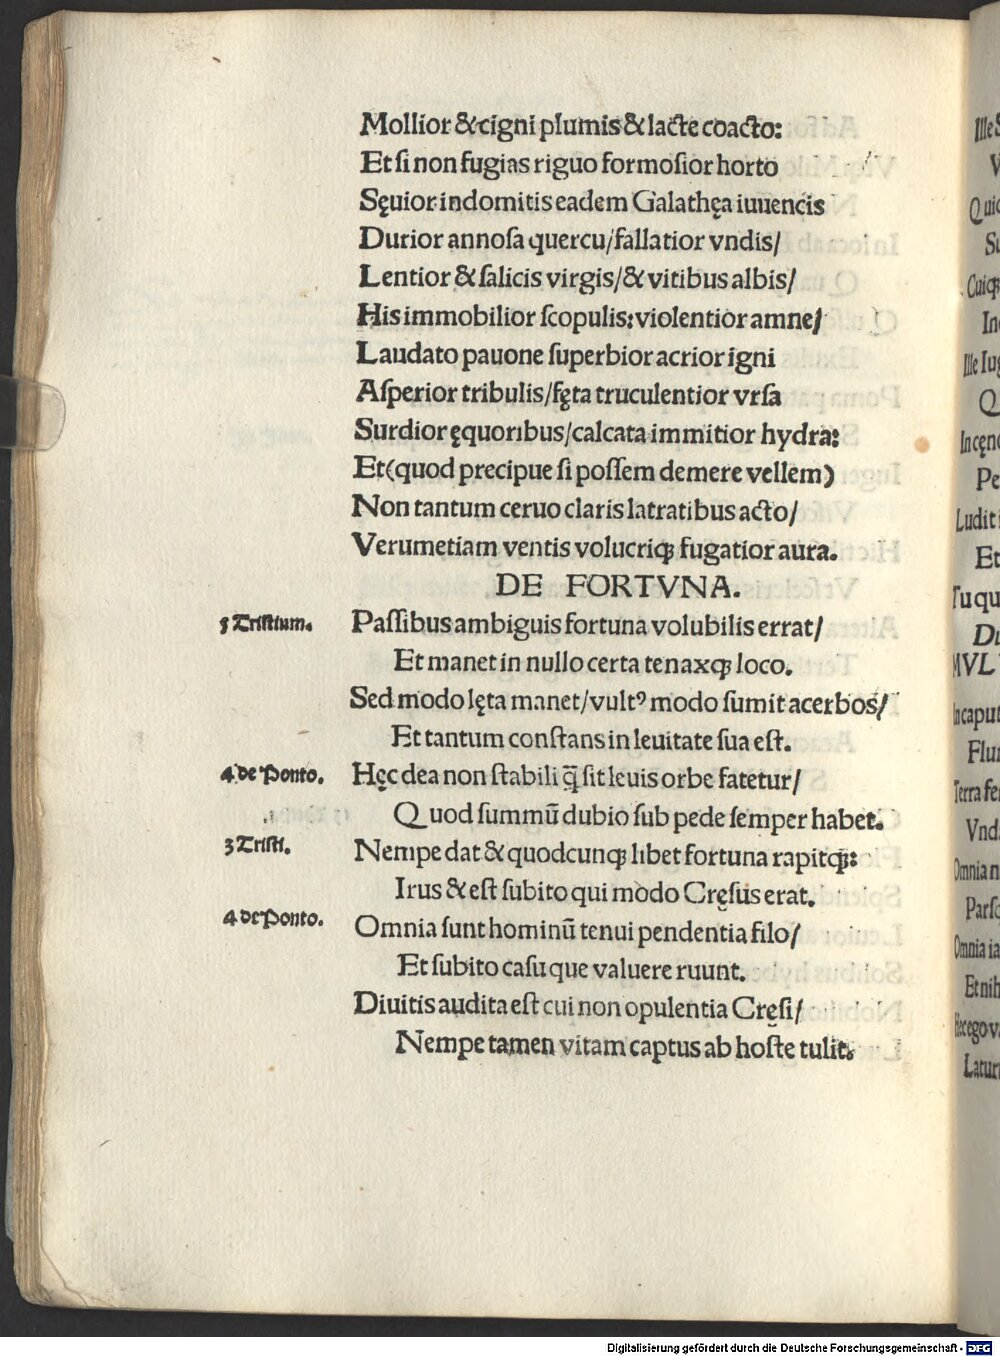 Mollior & cigni plumis & lacte coacto:
Et ſi non fugias riguo formoſior horto
Sęuior indomitis eadem Galathęa iuuencis
Durior annoſa quercu/fallatior vndis/
Lentior & ſalicis virgis/& vitibus albis/
His immobilior ſcopulis: violentior amne/
Laudato pauone ſuperbior acrior igni
Aſperior tribulis/fęta truculentior vrſa
Surdior ęquoribus/calcata immitior hydra:
Et(quod precipue ſi poſſem demere vellem)
Non tantum ceruo claris latratibus acto/
Verumetiam ventis volucriqꝫ fugatior aura.
DE FORTVNA.
5 Triſtium. Paſſibus ambiguis fortuna volubilis errat/
Et manet in nullo certa tenaxqꝫ loco.
Sed modo lęta manet/vultꝰ modo ſumit acerbos/
Et tantum conſtans in leuitate ſua eſt.
4 de Ponto. Hęc dea non ſtabili q̄ ſit leuis orbe fatetur/
Quod ſummū dubio ſub pede ſemper habet.
3 Triſti. Nempe dat & quodcunqꝫ libet fortuna rapitqꝫ:
Irus & eſt ſubito qui modo Cręſus erat.
4 de Ponto. Omnia ſunt hominū tenui pendentia filo/
Et ſubito caſu que valuere ruunt.
Diuitis audita eſt cui non opulentia Cręſi/
Nempe tamen vitam captus ab hoſte tulit.
Digitalisierung gefördert durch die Deutsche Forschungsgemeinschaft - DFG